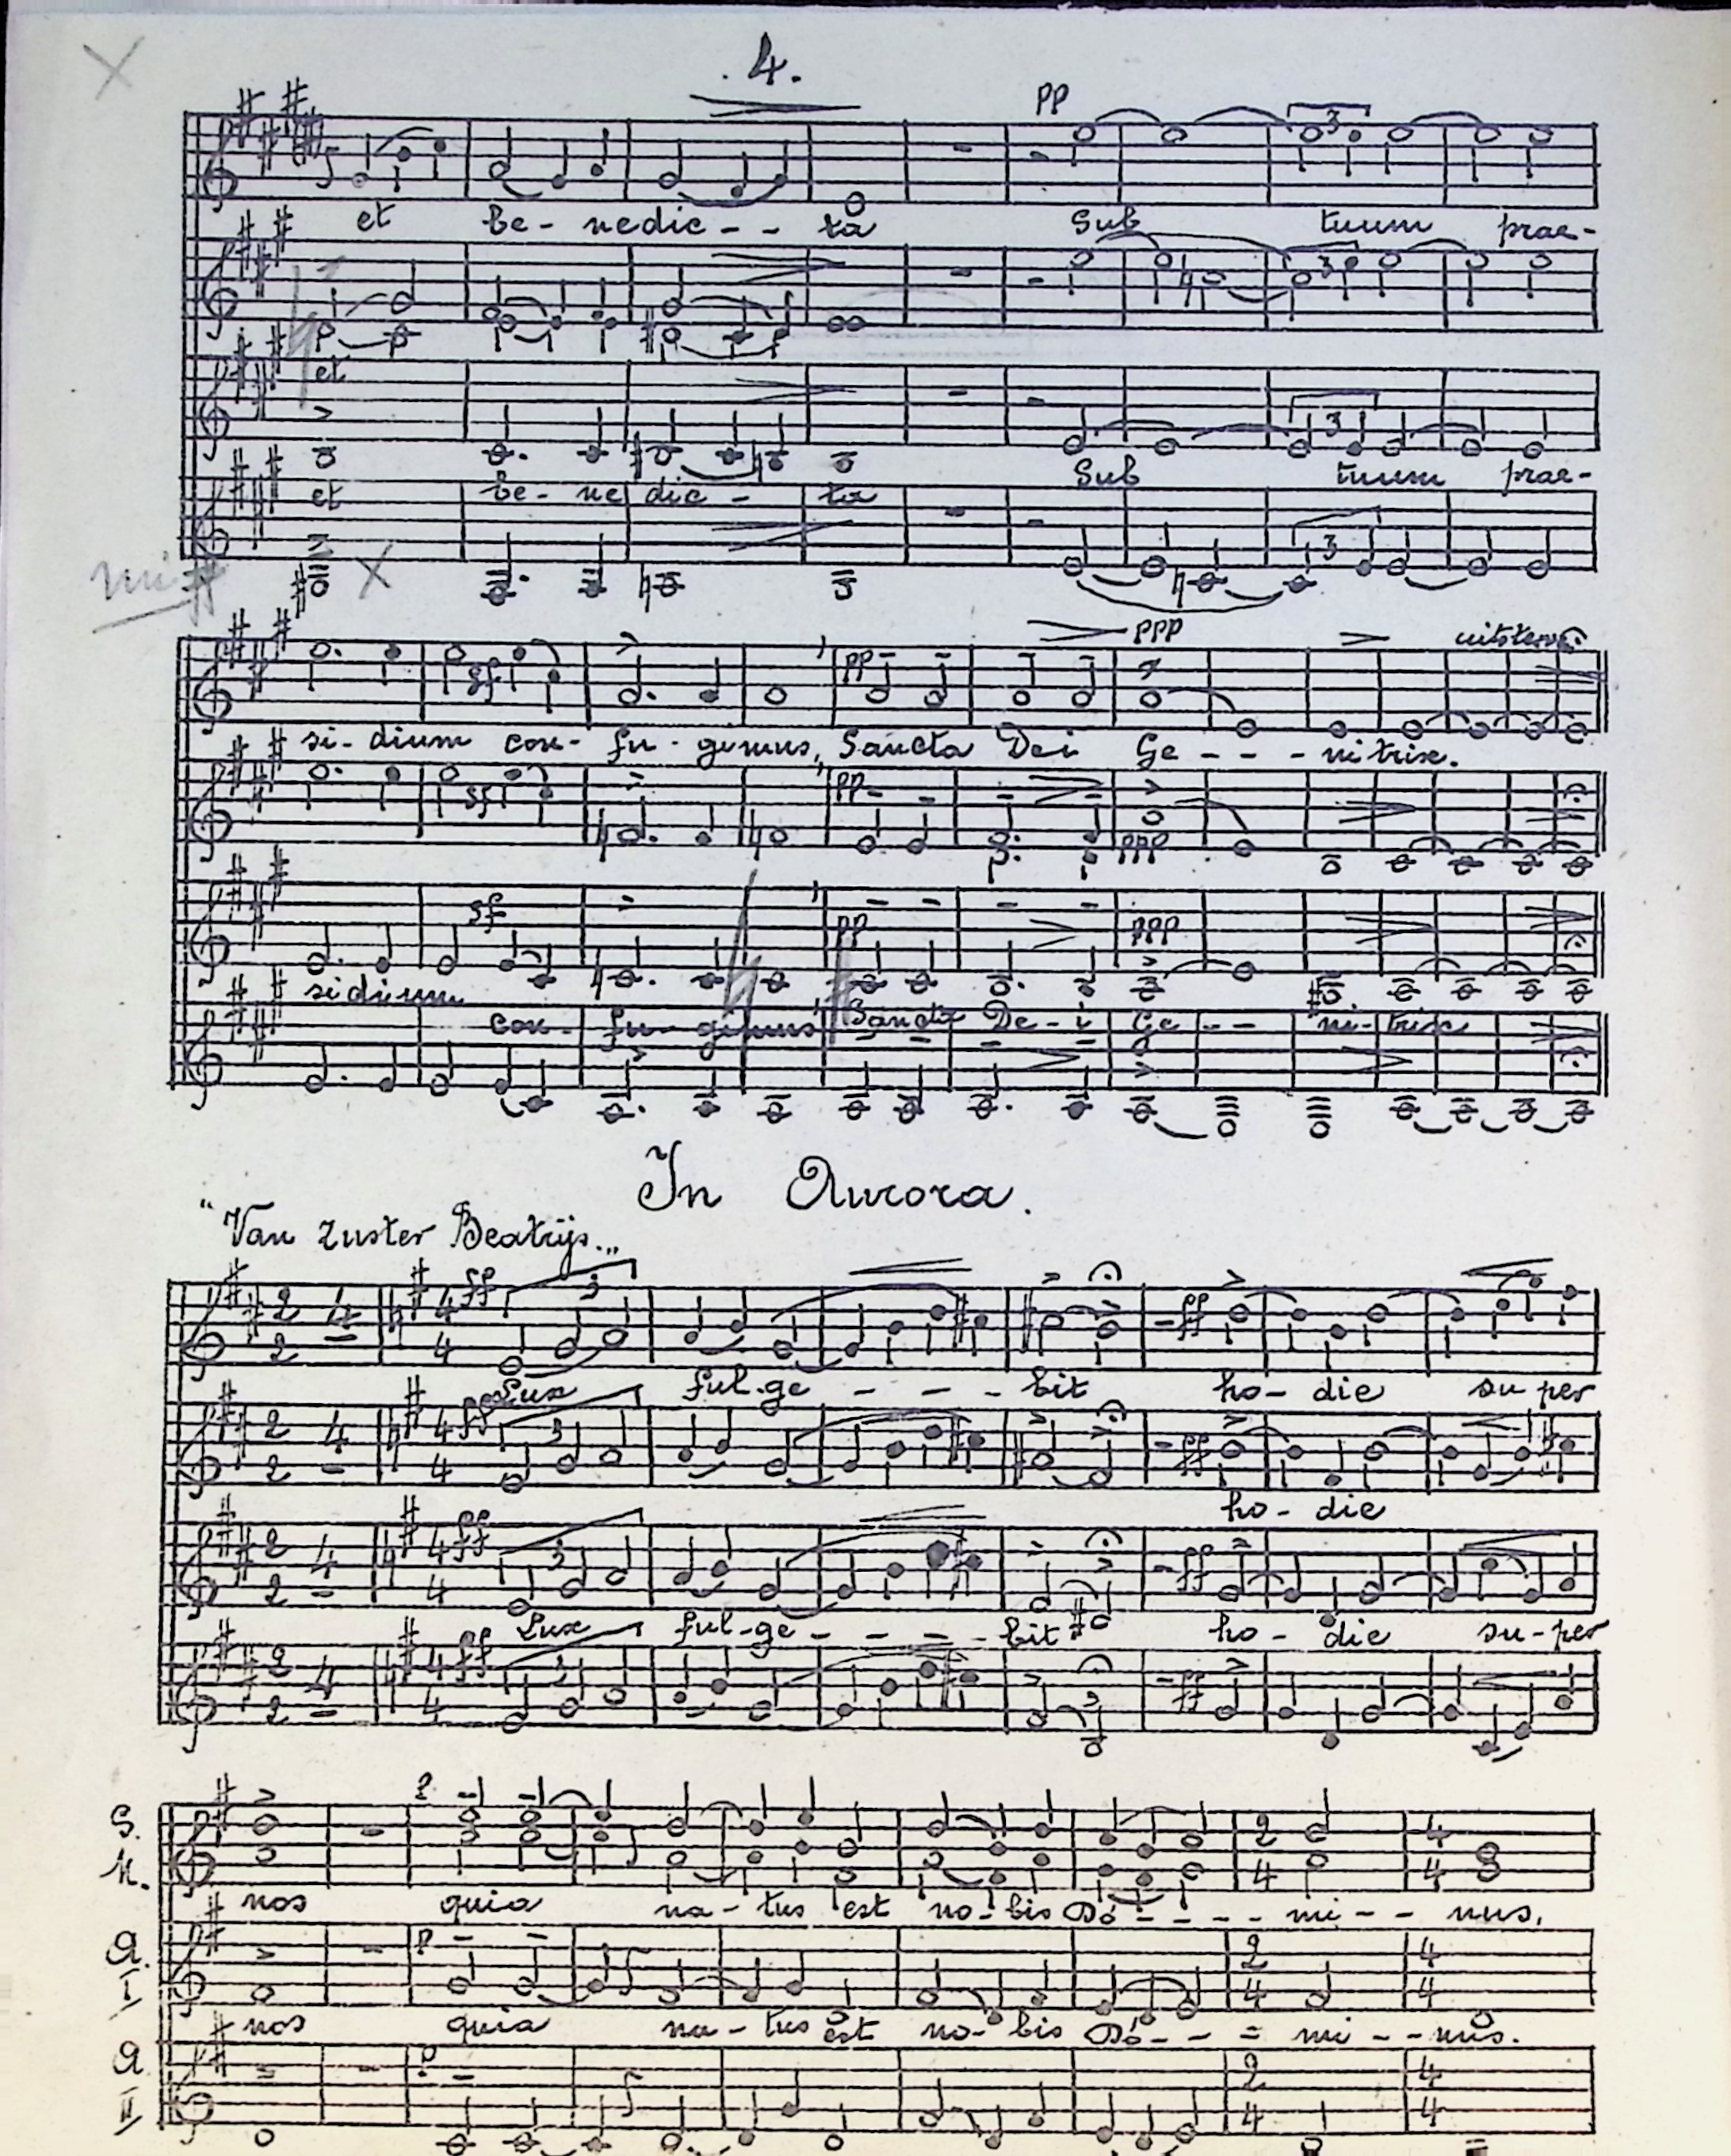 . 4.
pp
3
et be- nedic - - ta Sub tuum prae-
3
et
3
et be- ne dic - ta Sub tuum prae-
3
mi #
ppp
sf pp
si- dium con- fu - gimus, Sancta Dei Ge - - - nitrix.
sf pp ppp
sf pp ppp
sidium con- fu- gimus Sancta De - i Ge - - ni- trix
In Aurora.
"Van Zuster Beatrijs..."
2 4 4 ff 3 ff
2 4
Lux ful-ge - - - bit ho- die super
2 4 4 ff 3 ff
2 4
ho- die
2 4 4 ff 3 ff
2 4
Lux ful-ge - - - - bit ho- die su-per
2 4 4 ff 3 ff
2 4
S. 2 4
M. 4 4
nos quia na - tus est no- bis Dó - - - - mi - - nus.
A. p 2 4
I 4 4
nos quia na - tus est no- bis Dó - - = mi - - nus.
A p 2 4
II 4 4